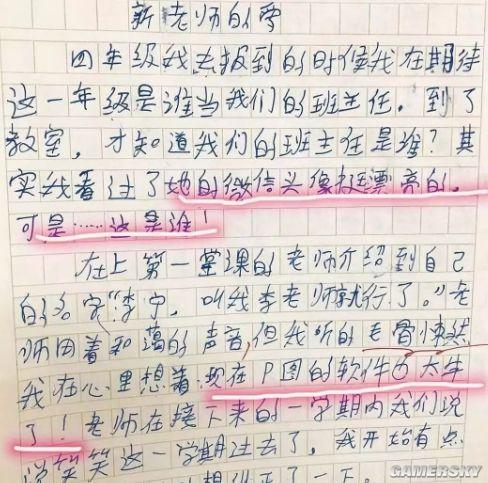 新老师的零
四年级我去报到的时候我在期待
这一年级是谁当我们的班主任。到了
教室，才知道我们的班主任是谁？其
实我看过了她的微信头像挺漂亮的。
可是……这是谁！
在上第一堂课的老师介绍到自己
的名字"李宁，叫我李老师就行了。"老
师用着和蔼的声音，但我听的毛骨悚然
我在心里想着：现在P图的软件也太牛
了！老师在接下来的一学期内我们说
说笑笑这一学期过去了，我开始有点
想 了一下。
GAMERSKY